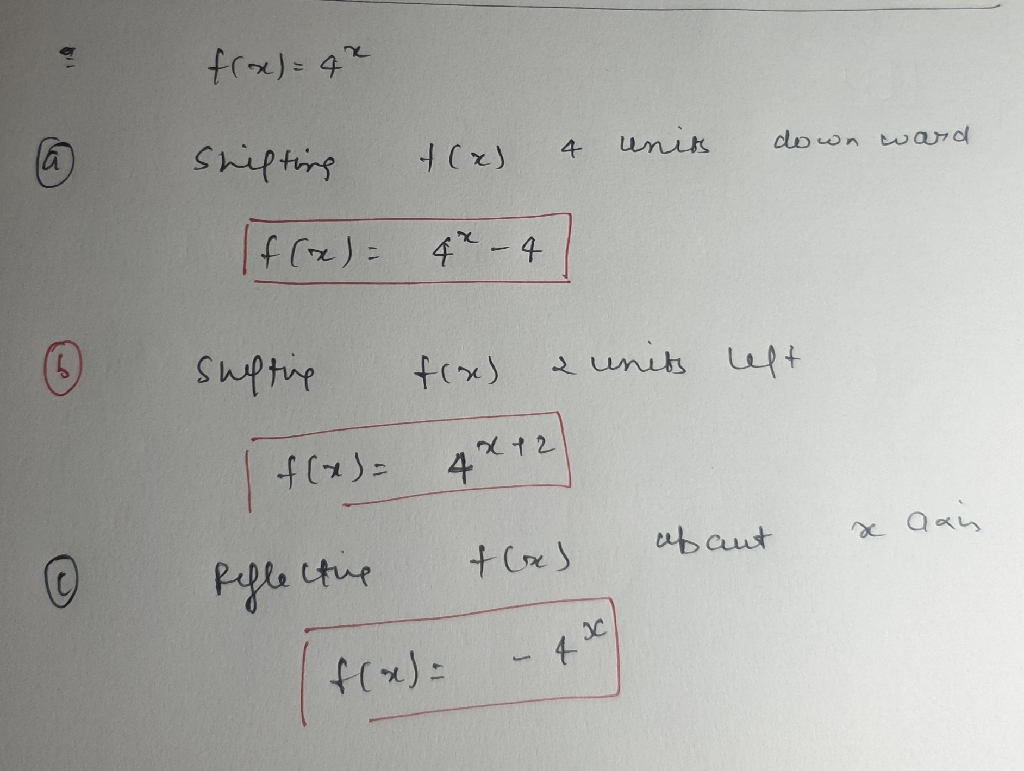 f(x) = 4^x
(a) Shifting f(x) 4 units down ward
f(x) = 4^x - 4
(b) Shifting f(x) 2 units left
f(x) = 4^x+2
(c) Reflecting f(x) about x axis
f(x) = - 4^x